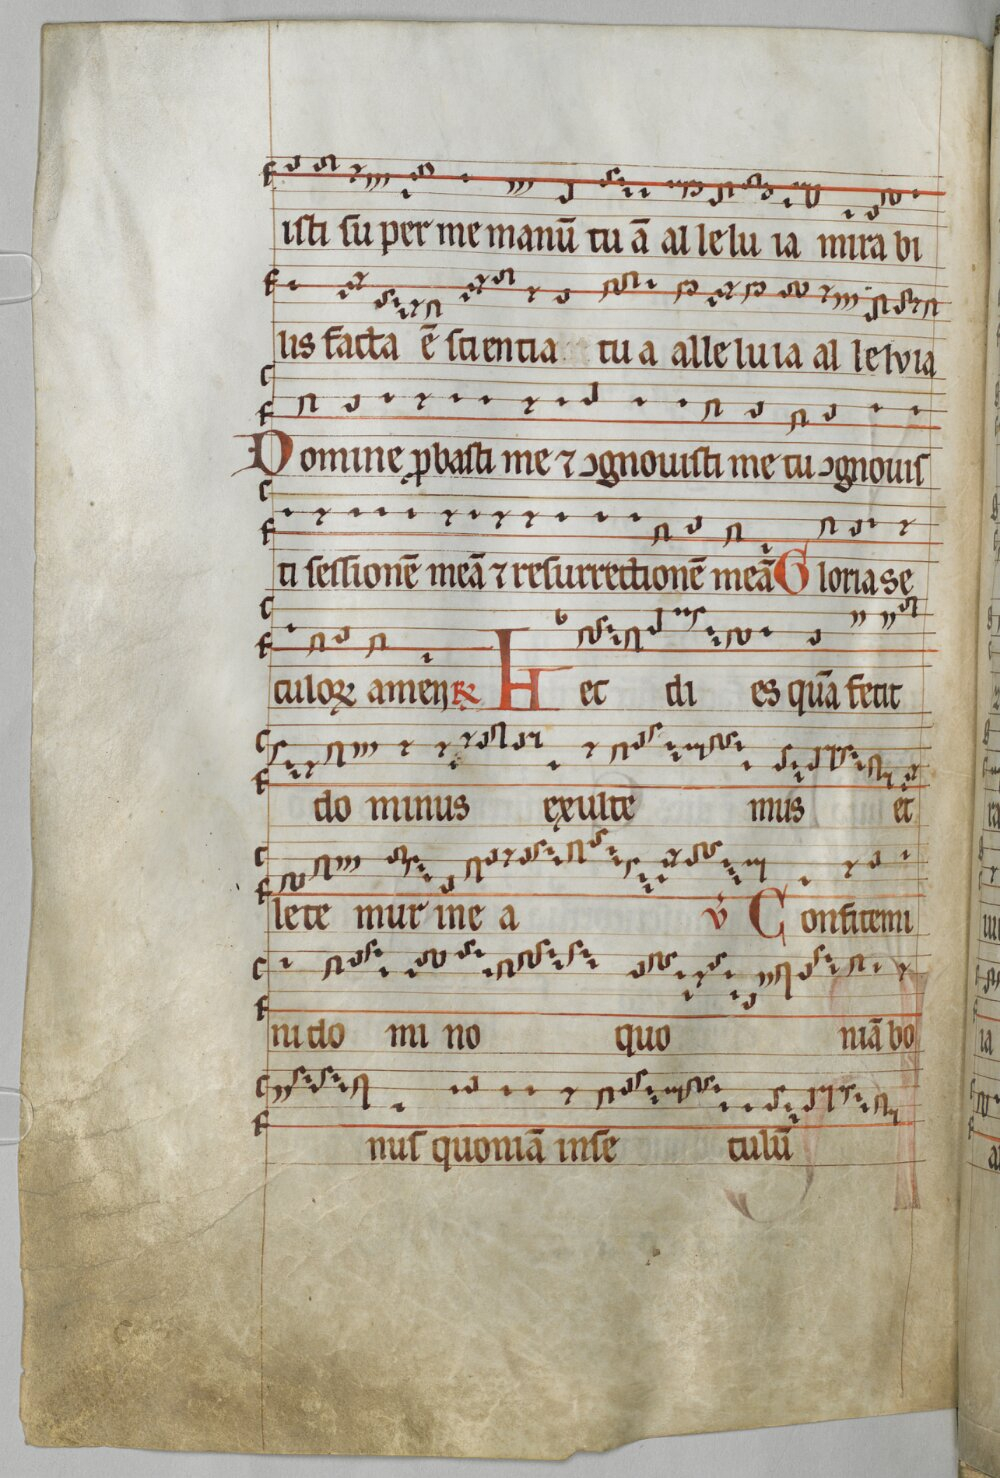 isti su per me manū tu ā al le lu ia mira bi
lis facta ē sci entia tu a alle lu ia al le lvia
Domine ꝓbasti me ⁊ ↄgnouisti me tu ↄgnouis
ti sessionē meā ⁊ resurrectionē meā Gloria se
culoꝝ amen ℟ Hec di es quā fecit
do minus exulte mus et
lete mur in e a v̇ Confitemi
ni do mi no quo niā bo
nus quoniā in se culū